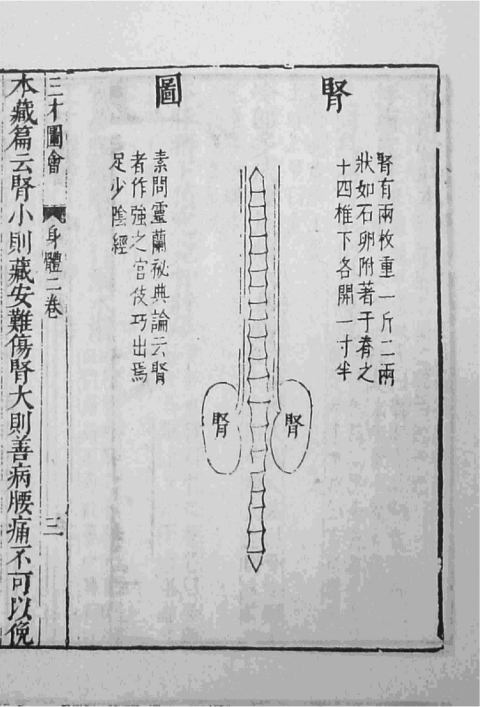 腎
圖
腎有兩枚重一斤二兩
狀如石卵附著于脊之
十四椎下各開一寸半
腎
腎
素問靈蘭祕典論云腎
者作強之官伎巧出焉
足少陰經
三才圖會
身體二卷
三
本藏篇云腎小則藏安難傷腎大則善病腰痛不可以俛